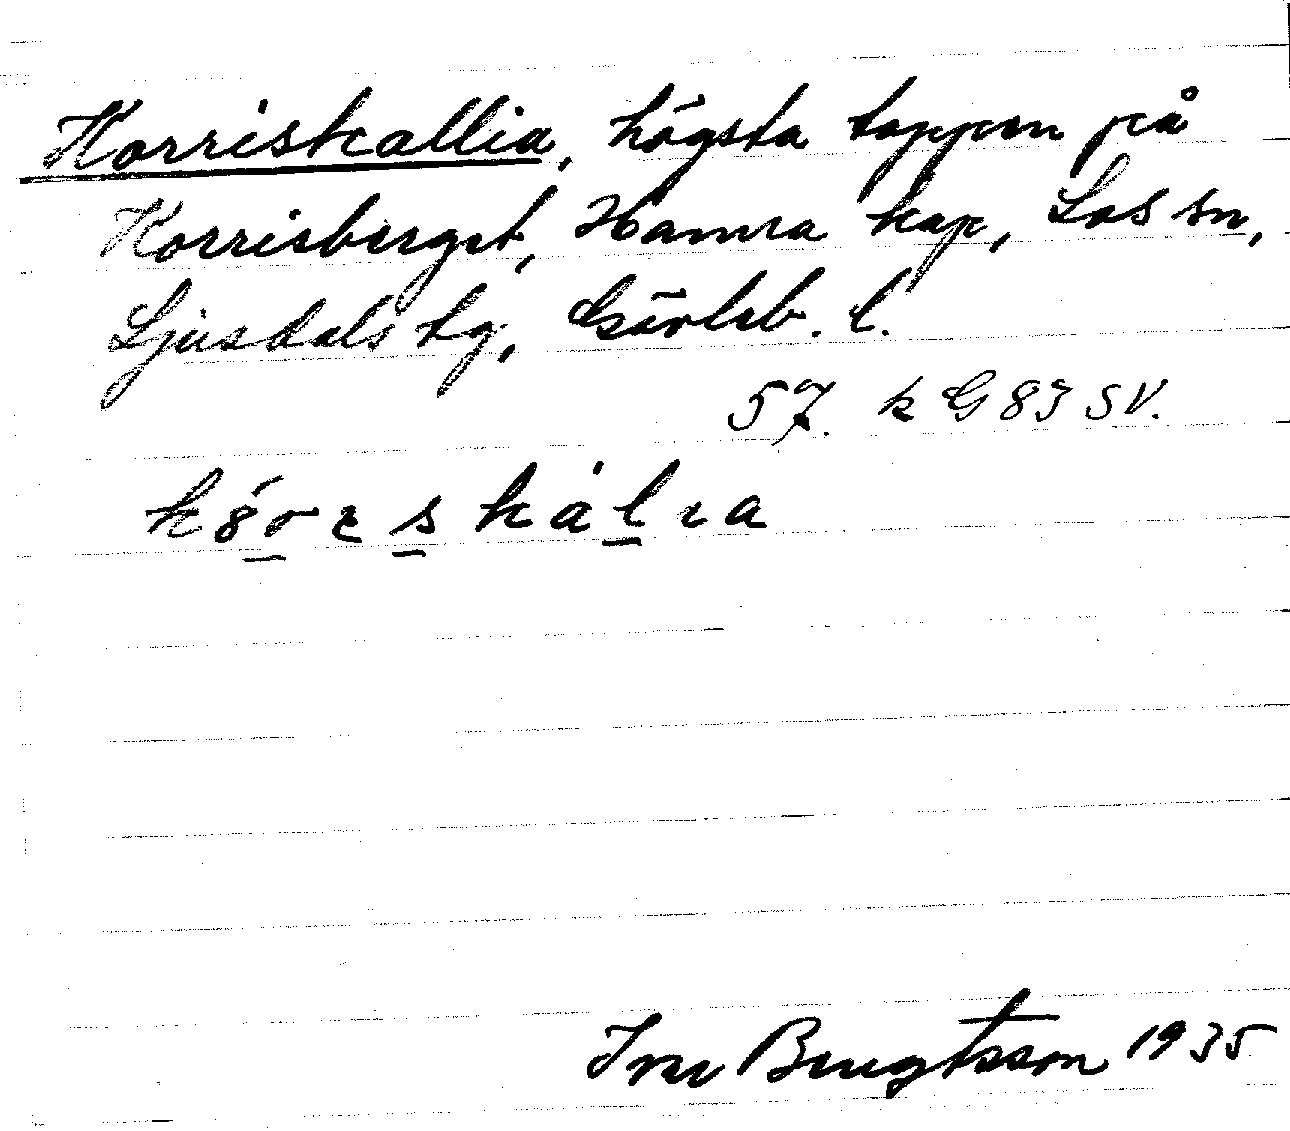 Korriskallia, högsta toppen på
Korrisberget, Hamra kap, Los sn,
Ljusdals tg, Gävleb. l.
57. k G 83 SV.
Bengtsson 1935